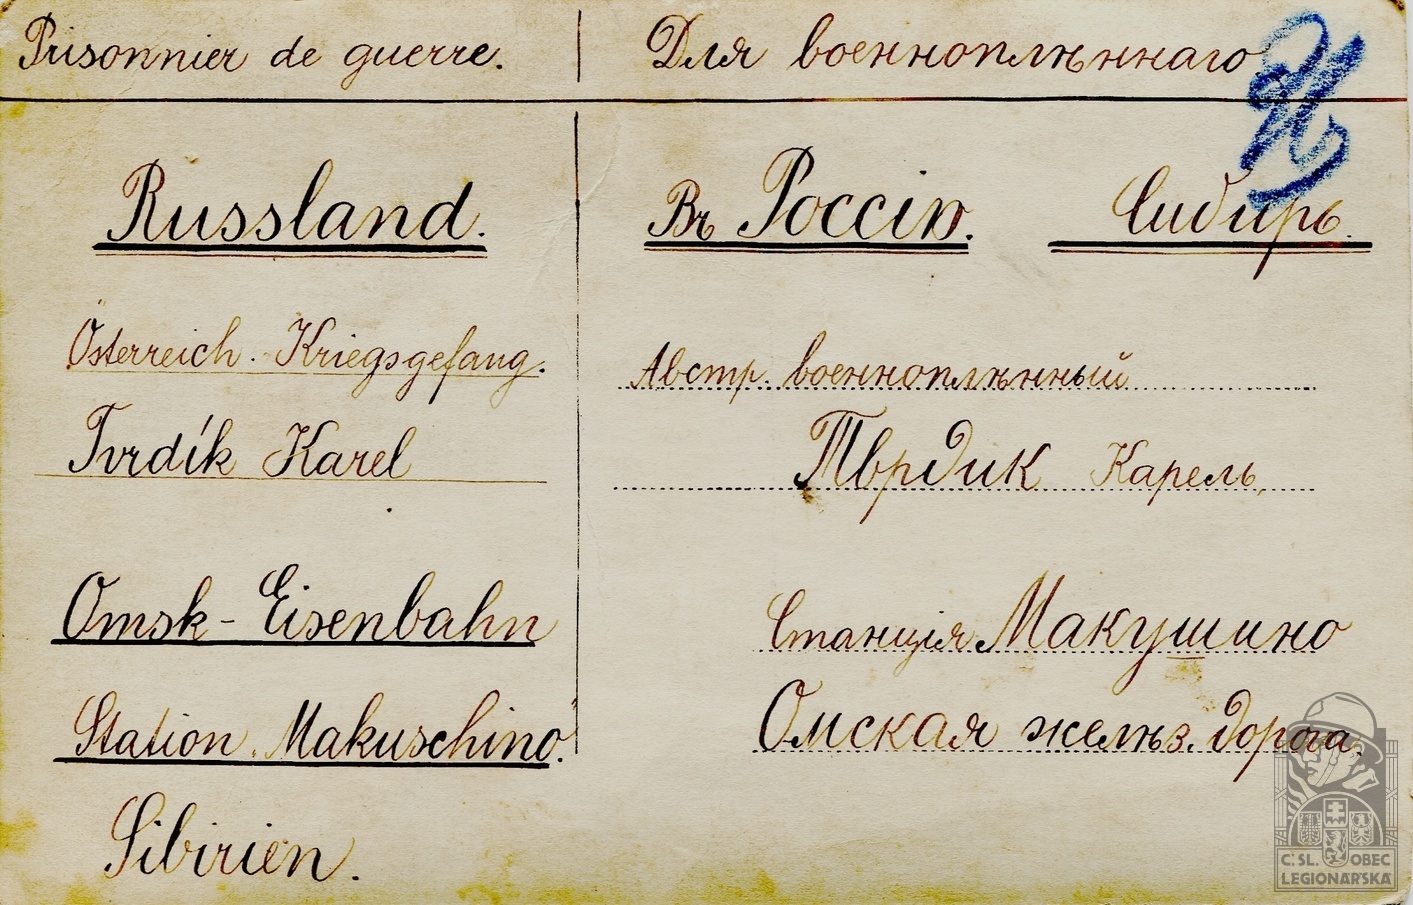 Prisonnier de guerre.
Для военноплѣннаго
Russland.
Въ Россію. Сибирь.
Österreich. Kriegsgefang.
Tvrdík Karel
Omsk-Eisenbahn
Station. Makuschino.
Sibirien.
Австр. военноплѣнный
Тврдик Карель,
Станція Макушино
Омская желѣз. дорога.
Č.SL. OBEC
LEGIONÁŘSKÁ